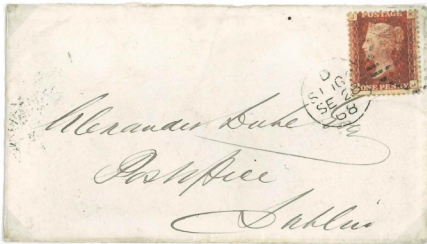 POSTAGE
ONE PENNY
Alexander Duke Esq
Post Office
Dublin